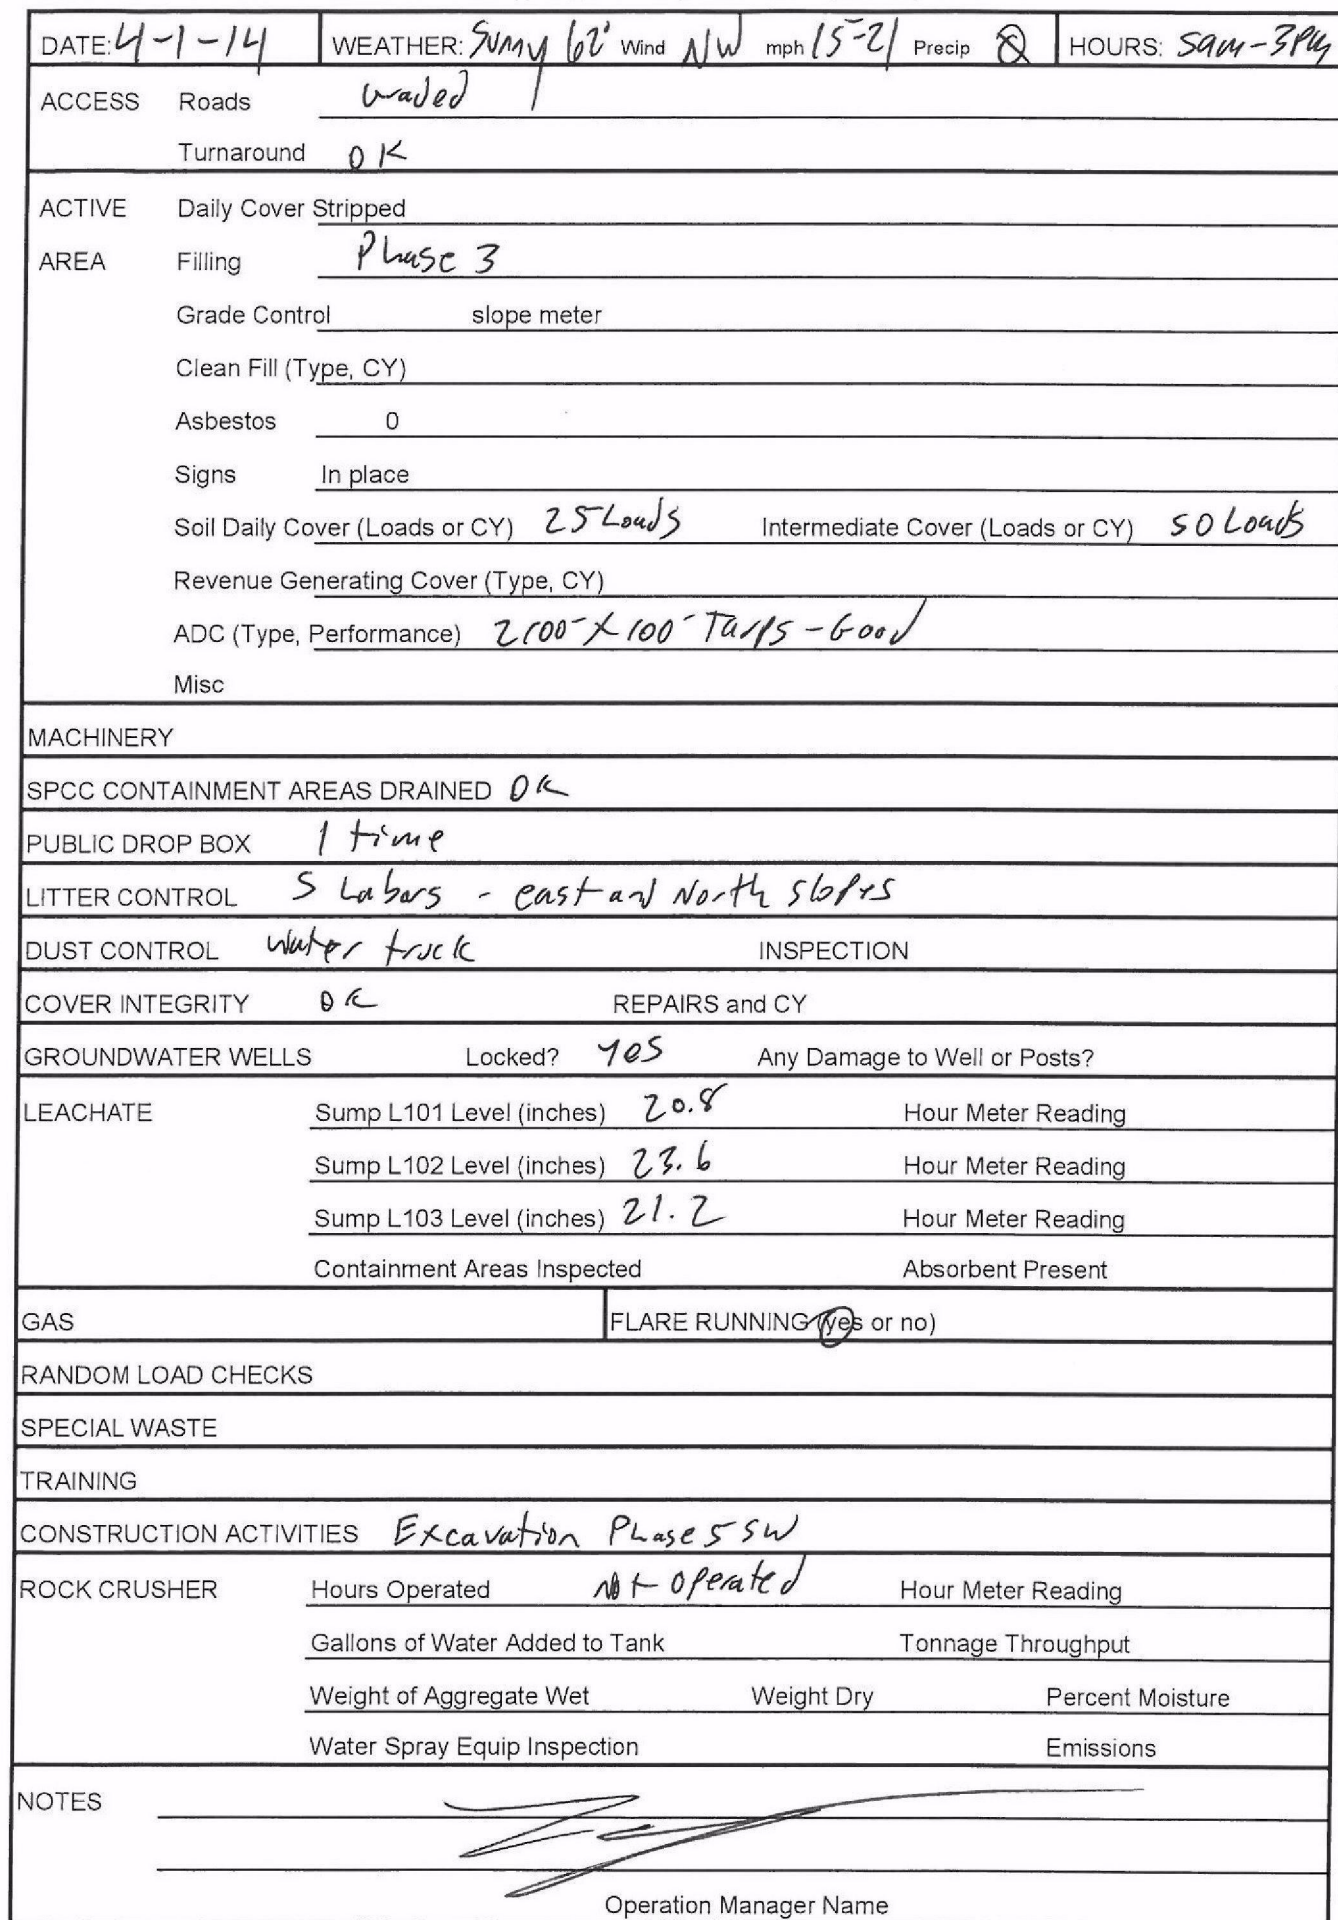 DATE: 4-1-14 WEATHER: Sunny 62° Wind NW mph 15-21 Precip HOURS: 5am-3PM
ACCESS Roads Graded
Turnaround OK
ACTIVE Daily Cover Stripped
AREA Filling Phase 3
Grade Control slope meter
Clean Fill (Type, CY)
Asbestos 0
Signs In place
Soil Daily Cover (Loads or CY) 25 Loads Intermediate Cover (Loads or CY) 50 Loads
Revenue Generating Cover (Type, CY)
ADC (Type, Performance) 2 100' X 100' Tarps - Good
Misc
MACHINERY
SPCC CONTAINMENT AREAS DRAINED OK
PUBLIC DROP BOX 1 time
LITTER CONTROL 5 Labors - east and North slopes
DUST CONTROL water truck INSPECTION
COVER INTEGRITY OK REPAIRS and CY
GROUNDWATER WELLS Locked? yes Any Damage to Well or Posts?
LEACHATE Sump L101 Level (inches) 20.8 Hour Meter Reading
Sump L102 Level (inches) 23.6 Hour Meter Reading
Sump L103 Level (inches) 21.2 Hour Meter Reading
Containment Areas Inspected Absorbent Present
GAS FLARE RUNNING (yes or no)
RANDOM LOAD CHECKS
SPECIAL WASTE
TRAINING
CONSTRUCTION ACTIVITIES Excavation Phase 5 SW
ROCK CRUSHER Hours Operated Not Operated Hour Meter Reading
Gallons of Water Added to Tank Tonnage Throughput
Weight of Aggregate Wet Weight Dry Percent Moisture
Water Spray Equip Inspection Emissions
NOTES
Operation Manager Name